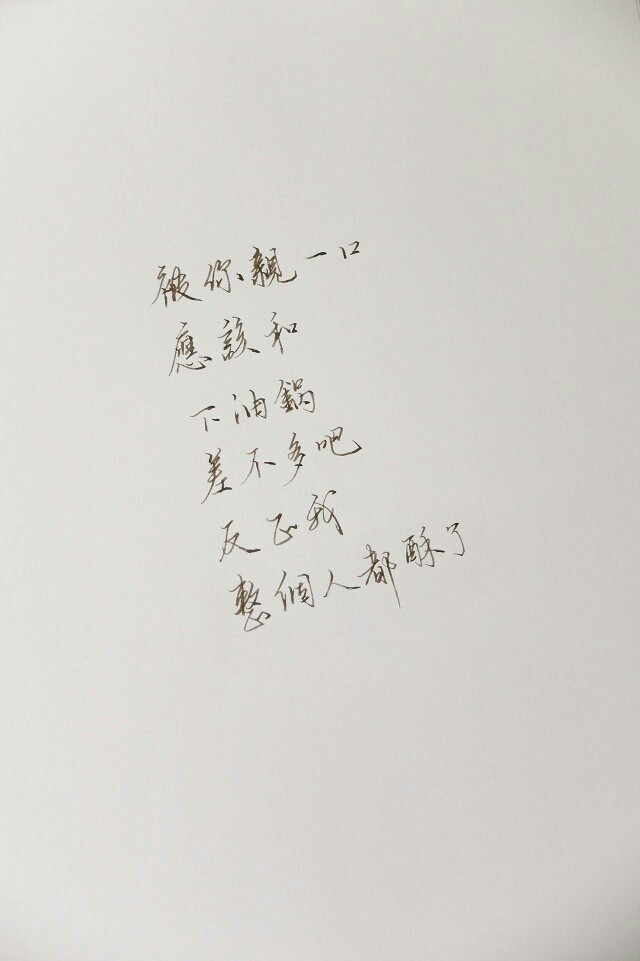 被你親一口
應該和
下油鍋
差不多吧
反正我
整個人都酥了